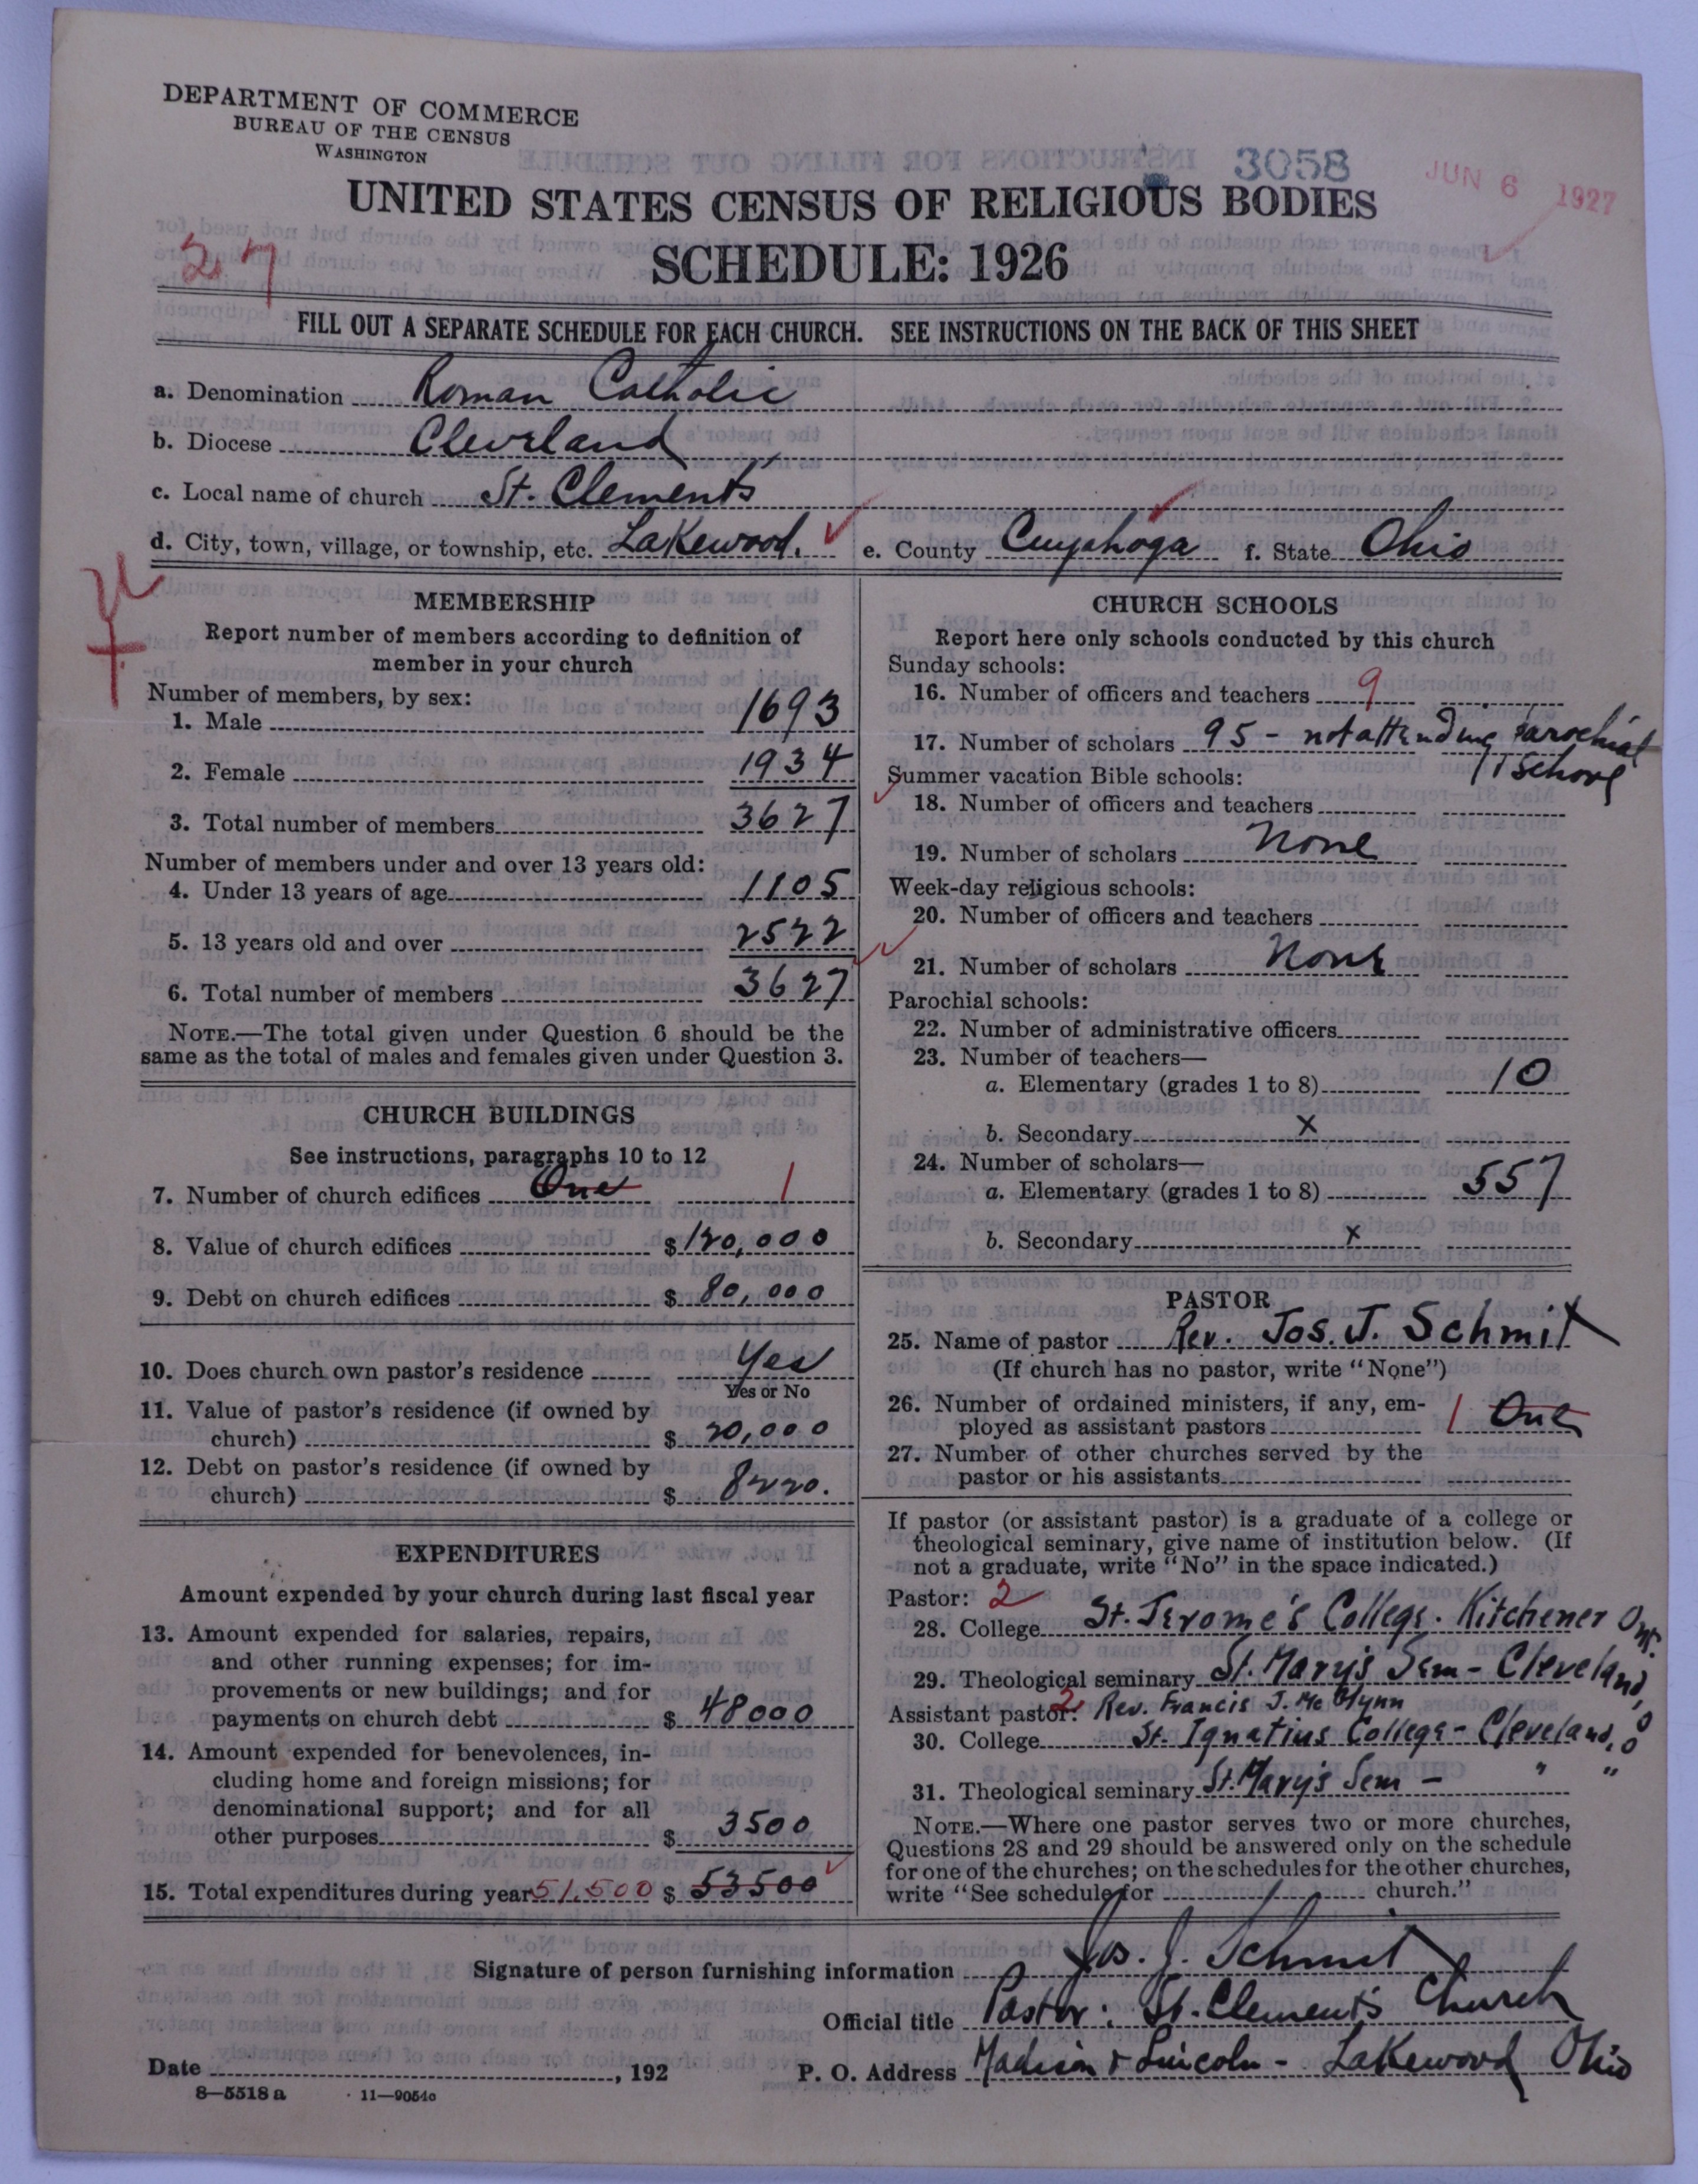 DEPARTMENT OF COMMERCE
BUREAU OF THE CENSUS
WASHINGTON
3058
JUN 6 1927
UNITED STATES CENSUS OF RELIGIOUS BODIES
27
SCHEDULE: 1926
FILL OUT A SEPARATE SCHEDULE FOR EACH CHURCH. SEE INSTRUCTIONS ON THE BACK OF THIS SHEET
a. Denomination Roman Catholic
b. Diocese Cleveland
c. Local name of church St. Clement's
d. City, town, village, or township, etc. Lakewood. e. County Cuyahoga f. State Ohio
MEMBERSHIP
Report number of members according to definition of
member in your church
Number of members, by sex:
1. Male 1693
2. Female 1934
3. Total number of members 3627
Number of members under and over 13 years old:
4. Under 13 years of age 1105
5. 13 years old and over 2522
6. Total number of members 3627
NOTE.—The total given under Question 6 should be the
same as the total of males and females given under Question 3.
CHURCH BUILDINGS
See instructions, paragraphs 10 to 12
7. Number of church edifices One 1
8. Value of church edifices $120,000
9. Debt on church edifices $ 80,000
10. Does church own pastor's residence Yes
Yes or No
11. Value of pastor's residence (if owned by
church) $ 20,000
12. Debt on pastor's residence (if owned by
church) $ 8220.
EXPENDITURES
Amount expended by your church during last fiscal year
13. Amount expended for salaries, repairs,
and other running expenses; for im-
provements or new buildings; and for
payments on church debt $ 48000
14. Amount expended for benevolences, in-
cluding home and foreign missions; for
denominational support; and for all
other purposes $ 3500
15. Total expenditures during year 51,500 $ 53500
CHURCH SCHOOLS
Report here only schools conducted by this church
Sunday schools:
16. Number of officers and teachers 9
17. Number of scholars 95 - not attending Parochial
School
Summer vacation Bible schools:
18. Number of officers and teachers
19. Number of scholars None
Week-day religious schools:
20. Number of officers and teachers
21. Number of scholars None
Parochial schools:
22. Number of administrative officers
23. Number of teachers—
a. Elementary (grades 1 to 8) 10
b. Secondary x
24. Number of scholars—
a. Elementary (grades 1 to 8) 557
b. Secondary x
PASTOR
25. Name of pastor Rev. Jos. J. Schmit
(If church has no pastor, write "None")
26. Number of ordained ministers, if any, em-
ployed as assistant pastors 1 One
27. Number of other churches served by the
pastor or his assistants
If pastor (or assistant pastor) is a graduate of a college or
theological seminary, give name of institution below. (If
not a graduate, write "No" in the space indicated.)
Pastor: 2
28. College St. Jerome's College. Kitchener Ont.
29. Theological seminary St. Mary's Sem - Cleveland, O
Assistant pastor: 2 Rev. Francis J. McGlynn
30. College St. Ignatius College - Cleveland, O
31. Theological seminary St. Mary's Sem - " "
NOTE.—Where one pastor serves two or more churches,
Questions 28 and 29 should be answered only on the schedule
for one of the churches; on the schedules for the other churches,
write "See schedule for church."
Signature of person furnishing information Jos. J. Schmit
Official title Pastor. St. Clement's Church
Date , 192 P. O. Address Madison & Lincoln - Lakewood Ohio
8—5518 a 11—9054c